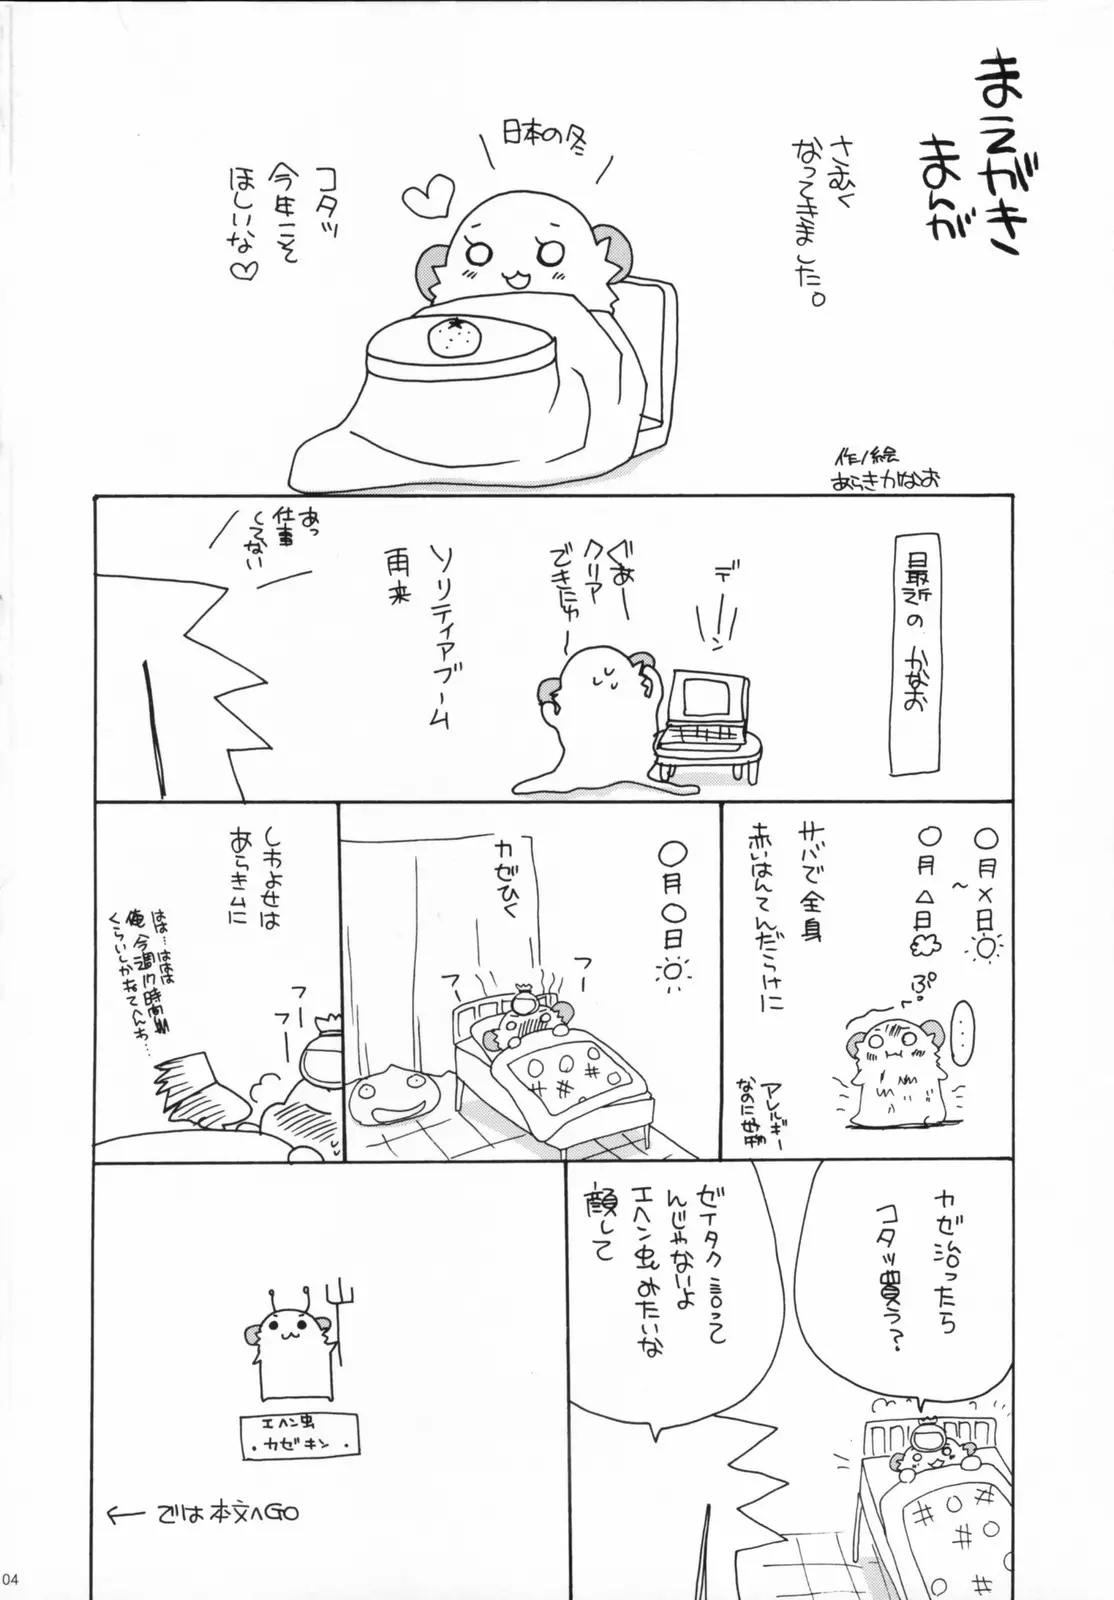 まえがき
まんが
さむく
なってきました。
日本の冬
コタツ
今年こそ
ほしいな♡
作/絵
あらきかなお
最近のかなお
デーン
ぐあー
クリア
できにゅー
ソリティアブーム
再来
あっ
仕事
してない
〇月×日
～
〇月△日
サバで全身
赤いはんてんだらけに
ぷ。
…
アレルギー
なのに好物
〇月〇日
カゼひく
フー
フー
しわよせは
あらきムに
はは…ははは
俺今週17時間
くらいしかねてへんわ…
フー
フー
カゼ治ったら
コタツ買う?
ゼイタク言って
んじゃないよ
エヘン虫みたいな
顔して
エヘン虫
・カゼキン・
←では本文へGO
04